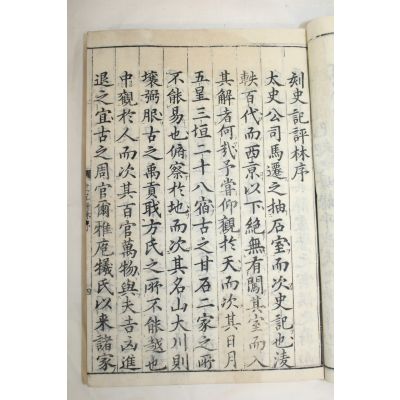 刻史記評林序
太史公司馬遷之抽石室而次史記也淩
軼百代而西京以下絕無有闖其室而入
其解者何哉予嘗仰觀於天而次其日月
五星三垣二十八宿古之甘石二家之所
不能易也俯察於地而次其名山大川則
壤弼服古之禹貢職方氏之所不能越也
中觀於人而次其百官萬物與夫吉凶進
退之宜古之周官爾雅庖犧氏以来諸家